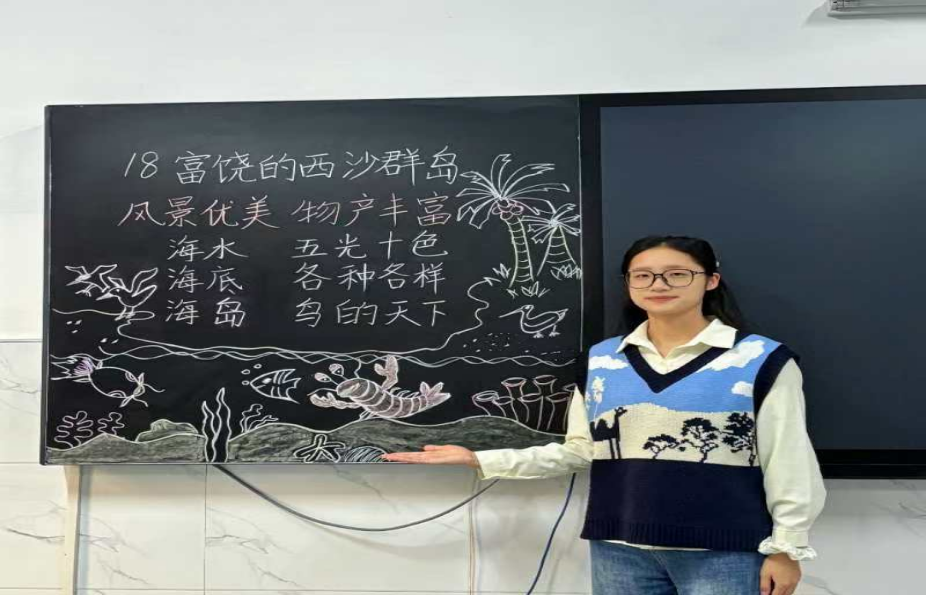 18 富饶的西沙群岛
风景优美 物产丰富
海水 五光十色
海底 各种各样
海岛 鸟的天下